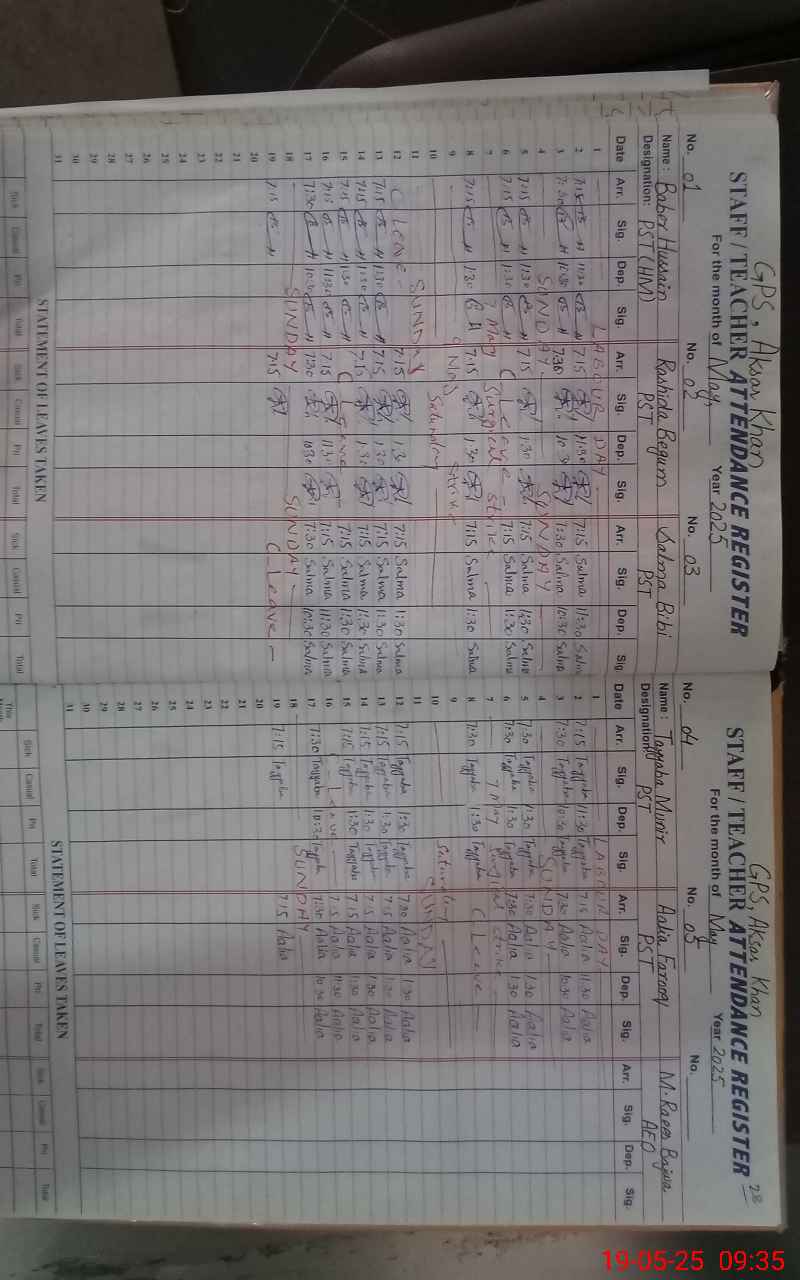 GPS, Aksar Khan
STAFF / TEACHER ATTENDANCE REGISTER
For the month of May, Year 2025
No. 01 No. 02 No. 03
Name: Baber Hussain Rashida Begum Salma Bibi
Designation: PST (HM) PST PST
Date Arr. Sig. Dep. Sig. Arr. Sig. Dep. Sig. Arr. Sig. Dep. Sig.
1 LABOUR DAY
2 7:15 11:30 7:15 11:30 7:15 Salma 11:30 Salma
3 7:30 10:30 7:30 10:30 7:30 Salma 10:30 Salma
4 SUNDAY SUNDAY
5 7:15 1:30 7:15 1:30 7:15 Salma 1:30 Salma
6 7:15 1:30 C Leave 7:15 Salma 1:30 Salma
7 7 May Surgical strike
8 7:15 1:30 7:15 1:30 7:15 Salma 1:30 Salma
9 strike
10 Saturday
11 SUNDAY
12 C Leave 7:15 1:30 7:15 Salma 1:30 Salma
13 7:15 1:30 7:15 1:30 7:15 Salma 1:30 Salma
14 7:15 1:30 7:15 1:30 7:15 Salma 1:30 Salma
15 7:15 1:30 C Leave 7:15 Salma 1:30 Salma
16 7:15 11:30 7:15 11:30 7:15 Salma 11:30 Salma
17 7:30 10:30 7:30 10:30 7:30 Salma 10:30 Salma
18 SUNDAY SUNDAY
19 7:15 7:15 C Leave
20
21
22
23
24
25
26
27
28
29
30
31
STATEMENT OF LEAVES TAKEN
Sick Casual Pri Total Sick Casual Pri Total Sick Casual Pri Total
28
GPS, Aksar Khan
STAFF / TEACHER ATTENDANCE REGISTER
For the month of May Year 2025
No. 04 No. 05 No.
Name: Tayyaba Munir Aalia Farooq M. Raees Bajwa
Designation: PST PST AEO
Date Arr. Sig. Dep. Sig. Arr. Sig. Dep. Sig. Arr. Sig. Dep. Sig.
1 LABOUR DAY
2 7:15 Tayyaba 11:30 Tayyaba 7:15 Aalia 11:30 Aalia
3 7:30 Tayyaba 10:30 Tayyaba 7:30 Aalia 10:30 Aalia
4 SUNDAY
5 7:30 Tayyaba 1:30 Tayyaba 7:30 Aalia 1:30 Aalia
6 7:30 Tayyaba 1:30 Tayyaba 7:30 Aalia 1:30 Aalia
7 7 May Surgical strike
8 7:30 Tayyaba 1:30 Tayyaba C Leave
9
10 Saturday
11 SUNDAY
12 7:15 Tayyaba 1:30 Tayyaba 7:30 Aalia 1:30 Aalia
13 7:15 Tayyaba 1:30 Tayyaba 7:15 Aalia 1:30 Aalia
14 7:15 Tayyaba 1:30 Tayyaba 7:15 Aalia 1:30 Aalia
15 7:15 Tayyaba 1:30 Tayyaba 7:15 Aalia 1:30 Aalia
16 Leave 7:15 Aalia 11:30 Aalia
17 7:30 Tayyaba 10:30 Tayyaba 7:30 Aalia 10:30 Aalia
18 SUNDAY
19 7:15 Tayyaba 7:15 Aalia
20
21
22
23
24
25
26
27
28
29
30
31
STATEMENT OF LEAVES TAKEN
Sick Casual Pri Total Sick Casual Pri Total Sick Casual Pri Total
This
19-05-25 09:35